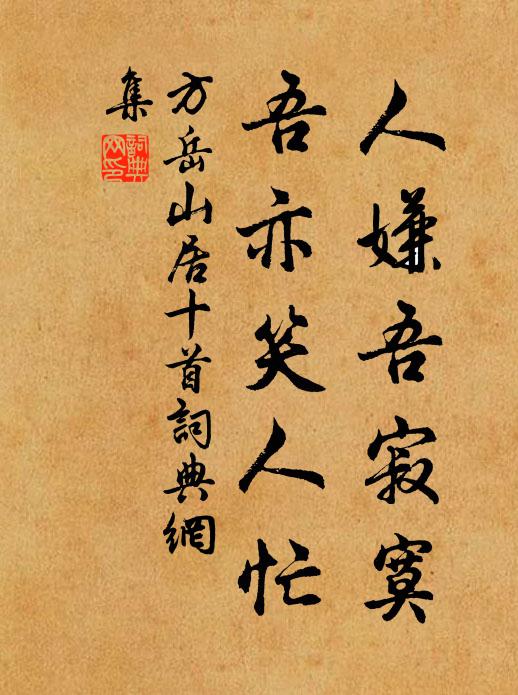 人嫌吾寂寞
吾亦笑人忙
方岳山居十首詞典網
集
詞典
网印